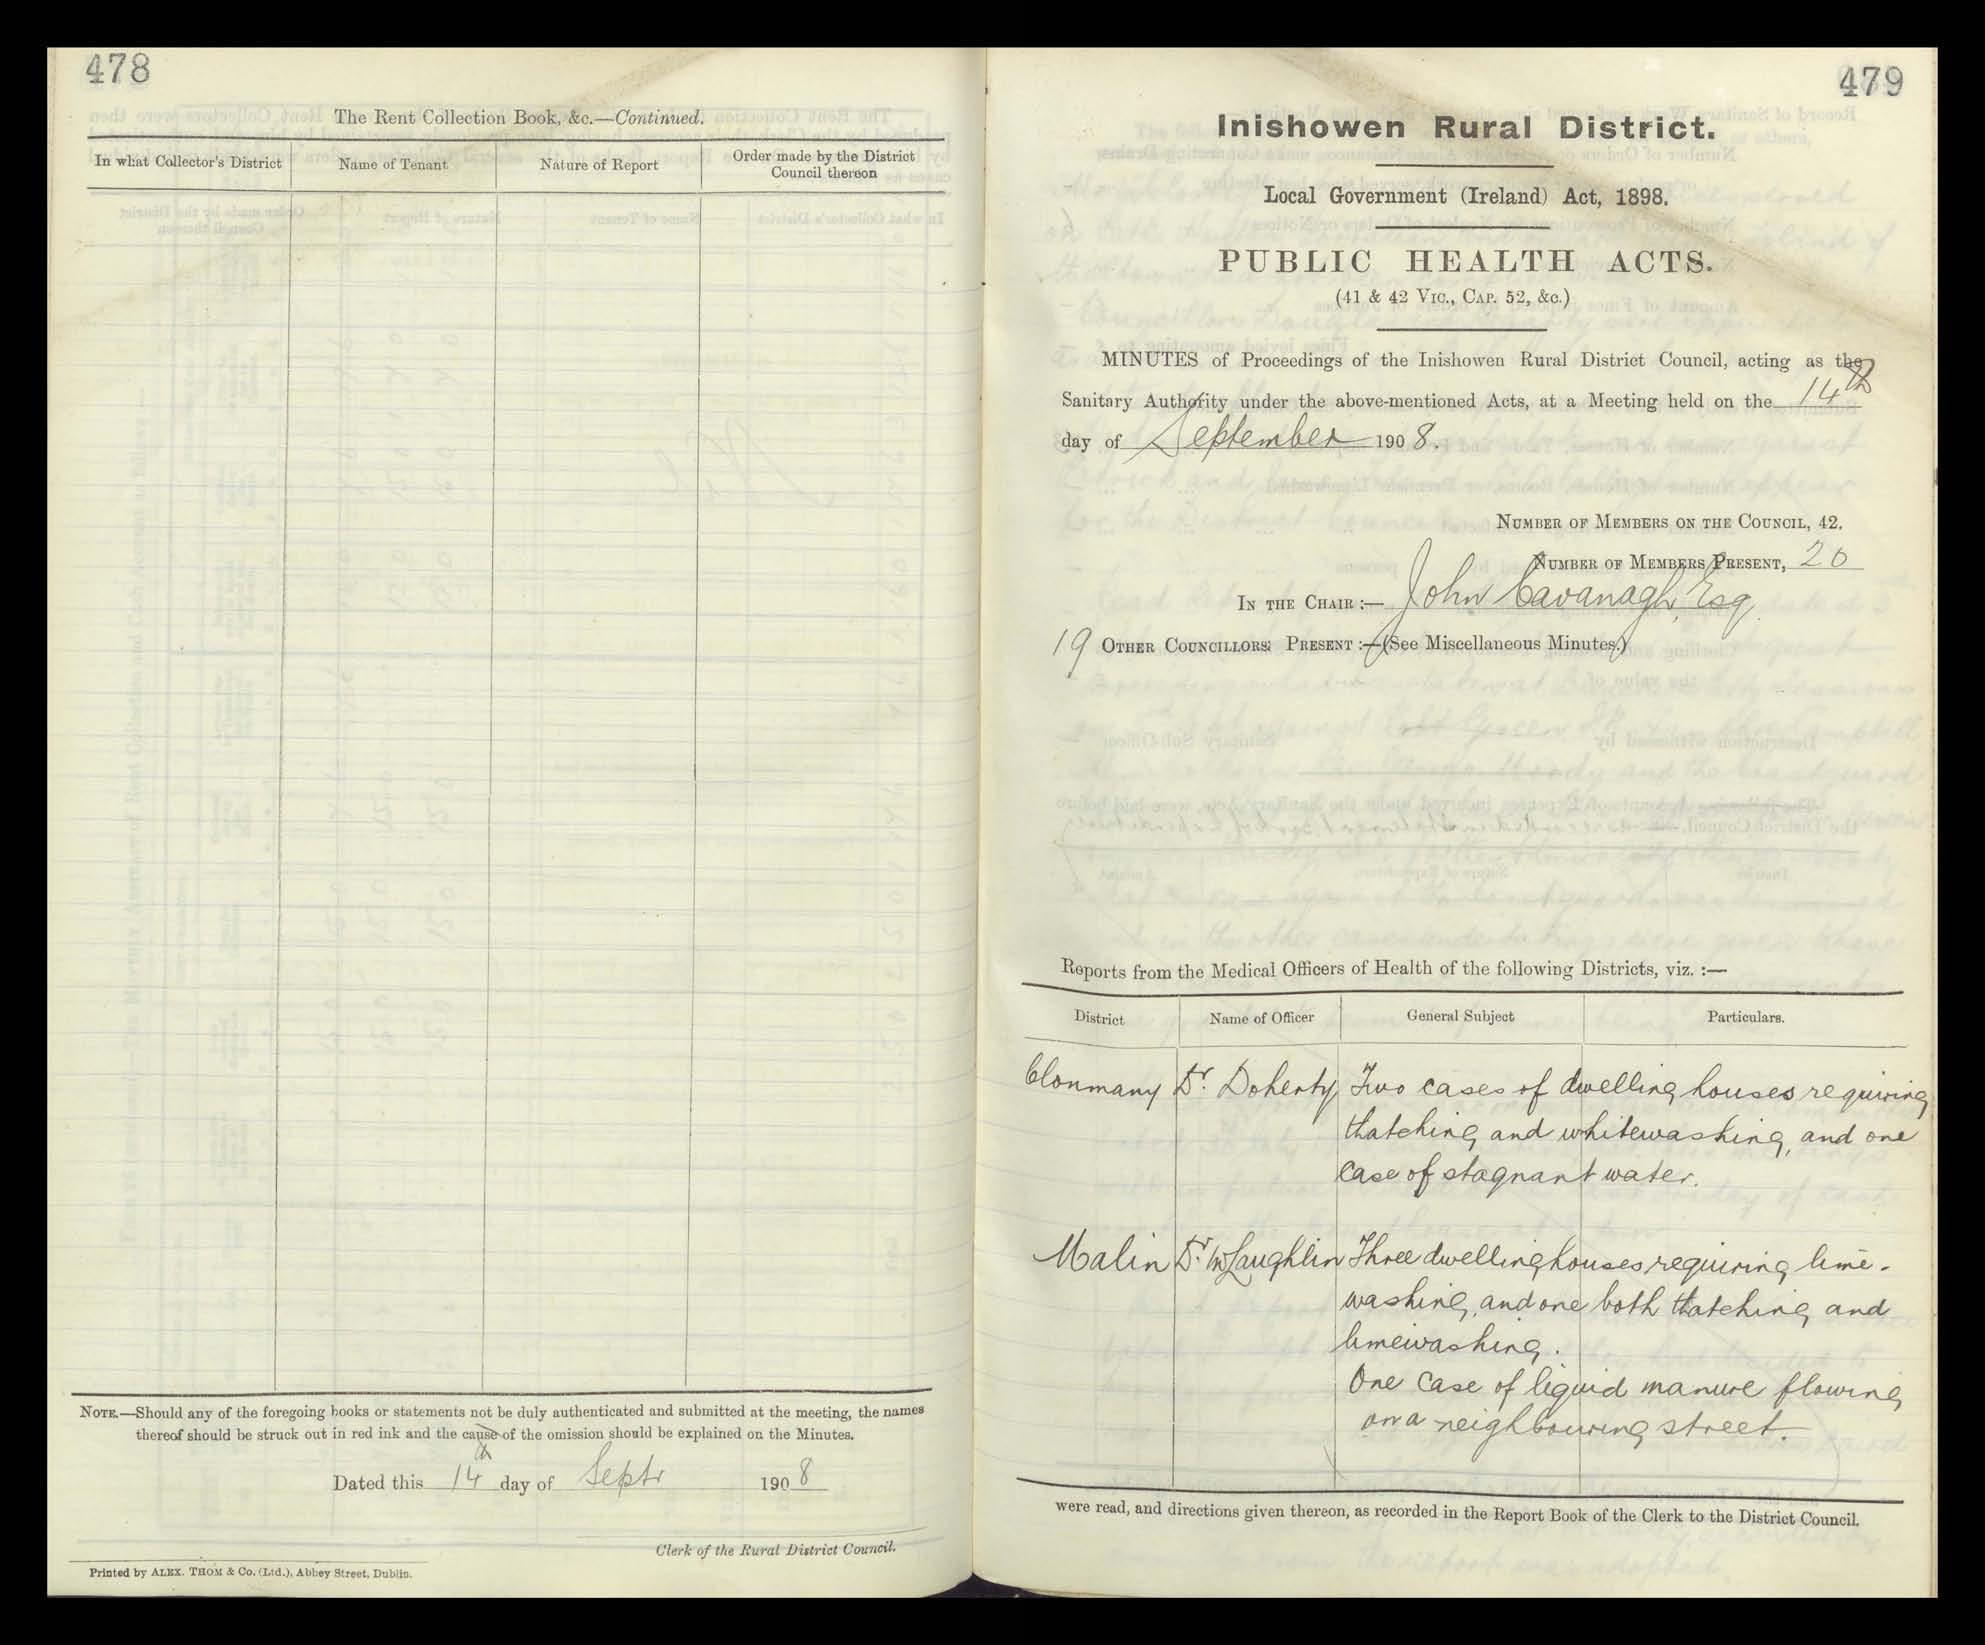 478
The Rent Collection Book, &c.—Continued.
In what Collector's District
Name of Tenant
Nature of Report
Order made by the District
Council thereon
NOTE.—Should any of the foregoing books or statements not be duly authenticated and submitted at the meeting, the names
thereof should be struck out in red ink and the cause of the omission should be explained on the Minutes.
Dated this 14th day of Septr 1908
Clerk of the Rural District Council.
Printed by ALEX. THOM & Co. (Ltd.), Abbey Street, Dublin.
479
Inishowen Rural District.
Local Government (Ireland) Act, 1898.
PUBLIC HEALTH ACTS.
(41 & 42 VIC., CAP. 52, &c.)
MINUTES of Proceedings of the Inishowen Rural District Council, acting as the
Sanitary Authority under the above-mentioned Acts, at a Meeting held on the 14th
day of September 1908.
NUMBER OF MEMBERS ON THE COUNCIL, 42.
NUMBER OF MEMBERS PRESENT, 20
IN THE CHAIR :— John Cavanagh, Esq.
19 OTHER COUNCILLORS: PRESENT :—(See Miscellaneous Minutes.)
Reports from the Medical Officers of Health of the following Districts, viz. :—
District
Name of Officer
General Subject
Particulars.
Clonmany Dr. Doherty Two cases of dwelling houses requiring
thatching and whitewashing, and one
case of stagnant water.
Malin Dr. McLaughlin Three dwelling houses requiring lime-
washing, and one both thatching and
limewashing.
One case of liquid manure flowing
on a neighbouring street.
were read, and directions given thereon, as recorded in the Report Book of the Clerk to the District Council.